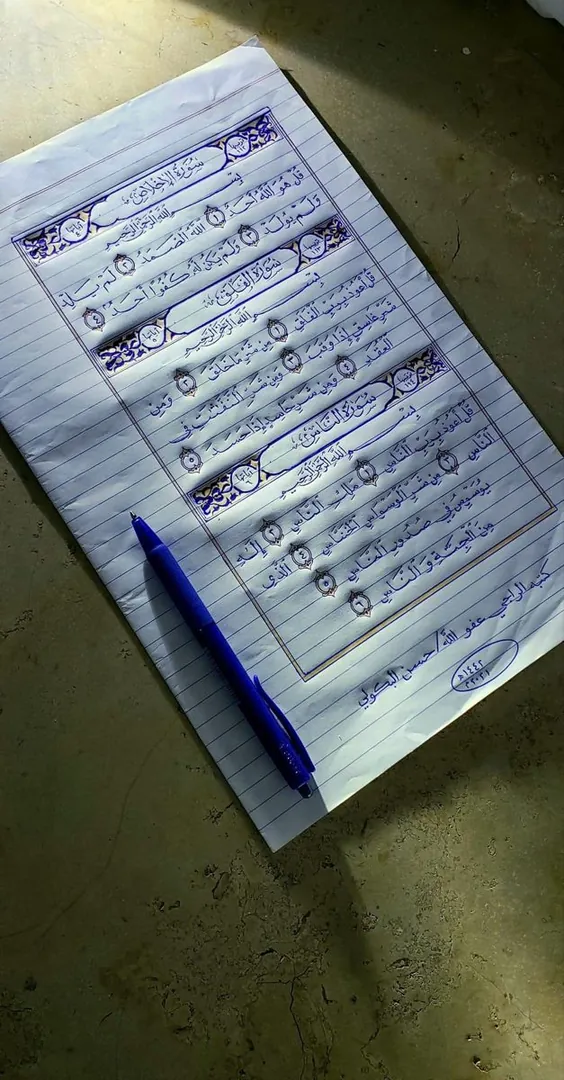 سُورَةُ الإِخْلَاصِ
بِسْمِ اللَّهِ الرَّحْمَنِ الرَّحِيمِ
قُلْ هُوَ اللَّهُ أَحَدٌ ١ اللَّهُ الصَّمَدُ ٢ لَمْ يَلِدْ
وَلَمْ يُولَدْ ٣ وَلَمْ يَكُن لَّهُ كُفُوًا أَحَدٌ ٤
سُورَةُ الفَلَقِ
بِسْمِ اللَّهِ الرَّحْمَنِ الرَّحِيمِ
قُلْ أَعُوذُ بِرَبِّ الْفَلَقِ ١ مِن شَرِّ مَا خَلَقَ ٢ وَمِن
شَرِّ غَاسِقٍ إِذَا وَقَبَ ٣ وَمِن شَرِّ النَّفَّٰثَٰتِ فِي
الْعُقَدِ ٤ وَمِن شَرِّ حَاسِدٍ إِذَا حَسَدَ ٥
سُورَةُ النَّاسِ
بِسْمِ اللَّهِ الرَّحْمَنِ الرَّحِيمِ
قُلْ أَعُوذُ بِرَبِّ النَّاسِ ١ مَلِكِ النَّاسِ ٢ إِلَٰهِ
النَّاسِ ٣ مِن شَرِّ الْوَسْوَاسِ الْخَنَّاسِ ٤ الَّذِى
يُوَسْوِسُ فِي صُدُورِ النَّاسِ ٥
مِنَ الْجِنَّةِ وَ النَّاسِ ٦
كتبه الراجي عفو الله/حسن البكولي
١٤٤٢هـ
٢٠٢١م